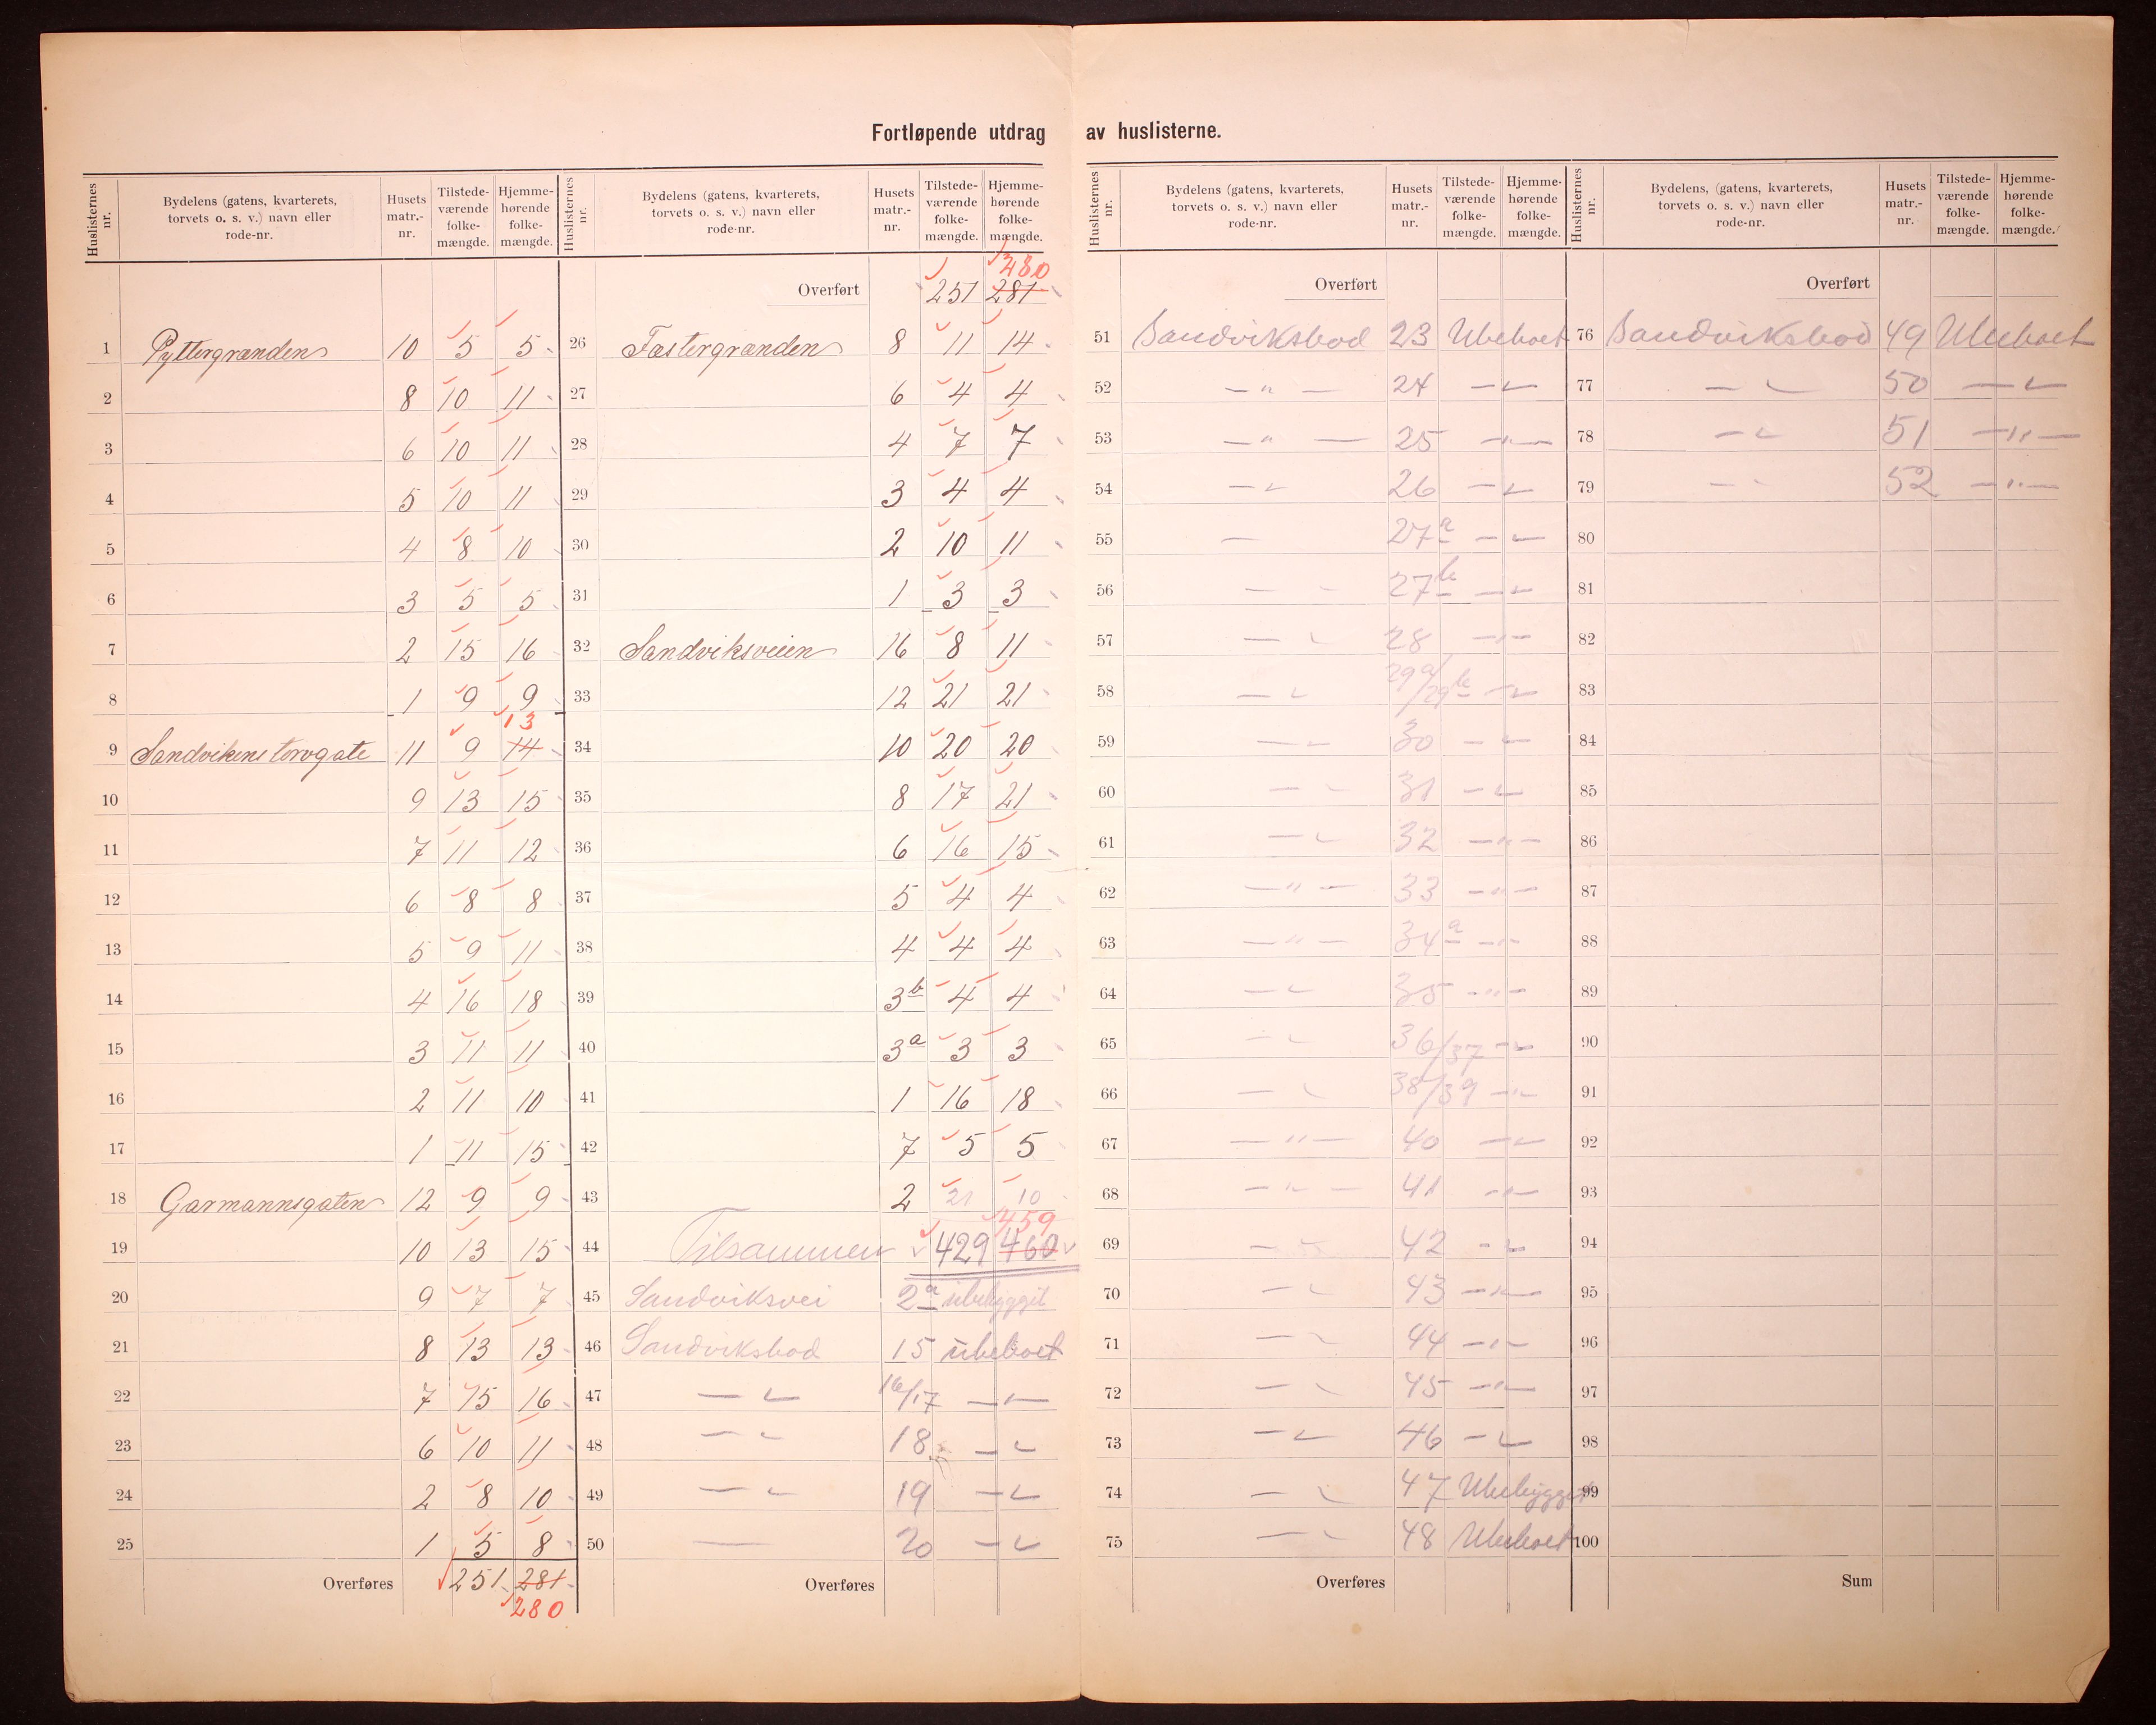 Fortløpende utdrag av huslisterne.
Huslisternes nr. | Bydelens (gatens, kvarterets, torvets o. s. v.) navn eller rode-nr. | Husets matr.-nr. | Tilstedeværende folkemængde. | Hjemmehørende folkemængde.
1 Pyttergrænden 10 5 5
2 8 10 11
3 6 10 11
4 5 10 11
5 4 8 10
6 3 5 5
7 2 15 16
8 1 9 9
13
9 Sandvikens torvgate 11 9 14
10 9 13 15
11 7 11 12
12 6 8 8
13 5 9 11
14 4 16 18
15 3 11 11
16 2 11 10
17 1 11 15
18 Garmannsgaten 12 9 9
19 10 13 15
20 9 7 7
21 8 13 13
22 7 15 16
23 6 10 11
24 2 8 10
25 1 5 8
Overføres 251 281
280
Huslisternes nr. | Bydelens (gatens, kvarterets, torvets o. s. v.) navn eller rode-nr. | Husets matr.-nr. | Tilstede-værende folke-mængde. | Hjemme-hørende folke-mængde.
280
Overført 251 281
26 Fastergrænden 8 11 14
27 6 4 4
28 4 7 7
29 3 4 4
30 2 10 11
31 1 3 3
32 Sandviksveien 16 8 11
33 12 21 21
34 10 20 20
35 8 17 21
36 6 16 15
37 5 4 4
38 4 4 4
39 3b 4 4
40 3a 3 3
41 1 16 18
42 7 5 5
43 2 21 10
459
44 Tilsammen 429 460
45 Sandviksvei 2a ubebygget
46 Sandviksbod 15 ubeboet
47 — " — 16/17 — " —
48 — " — 18 — " —
49 — " — 19 — " —
50 — 20 — " —
Overføres
Huslisternes nr. | Bydelens (gatens, kvarterets, torvets o. s. v.) navn eller rode-nr. | Husets matr.-nr. | Tilstede-værende folke-mængde. | Hjemme-hørende folke-mængde.
Overført
51 Sandviksbod 23 Ubeboet
52 — " — 24 — " —
53 — " — 25 — " —
54 — " — 26 — " —
55 — 27a — " —
56 — " — 27b — " —
57 — " — 28 — " —
58 — " — 29a/29b — " —
59 — " — 30 — " —
60 — " — 31 — " —
61 — " — 32 — " —
62 — " — 33 — " —
63 — " — 34a — " —
64 — " — 35 — " —
65 — " — 36/37 — " —
66 — " — 38/39 — " —
67 — " — 40 — " —
68 — " — 41 — " —
69 — " — 42 — " —
70 — " — 43 — " —
71 — " — 44 — " —
72 — " — 45 — " —
73 — " — 46 — " —
74 — " — 47 Ubebygget
75 — " — 48 Ubeboet
Overføres
Huslisternes nr. | Bydelens, (gatens, kvarterets, torvets o. s. v.) navn eller rode-nr. | Husets matr.-nr. | Tilstede-værende folke-mængde. | Hjemme-hørende folke-mængde.
Overført
76 Sandviksbod 49 Ubeboet
77 — " — 50 — " —
78 — " — 51 — " —
79 — " — 52 — " —
80
81
82
83
84
85
86
87
88
89
90
91
92
93
94
95
96
97
98
99
100
Sum